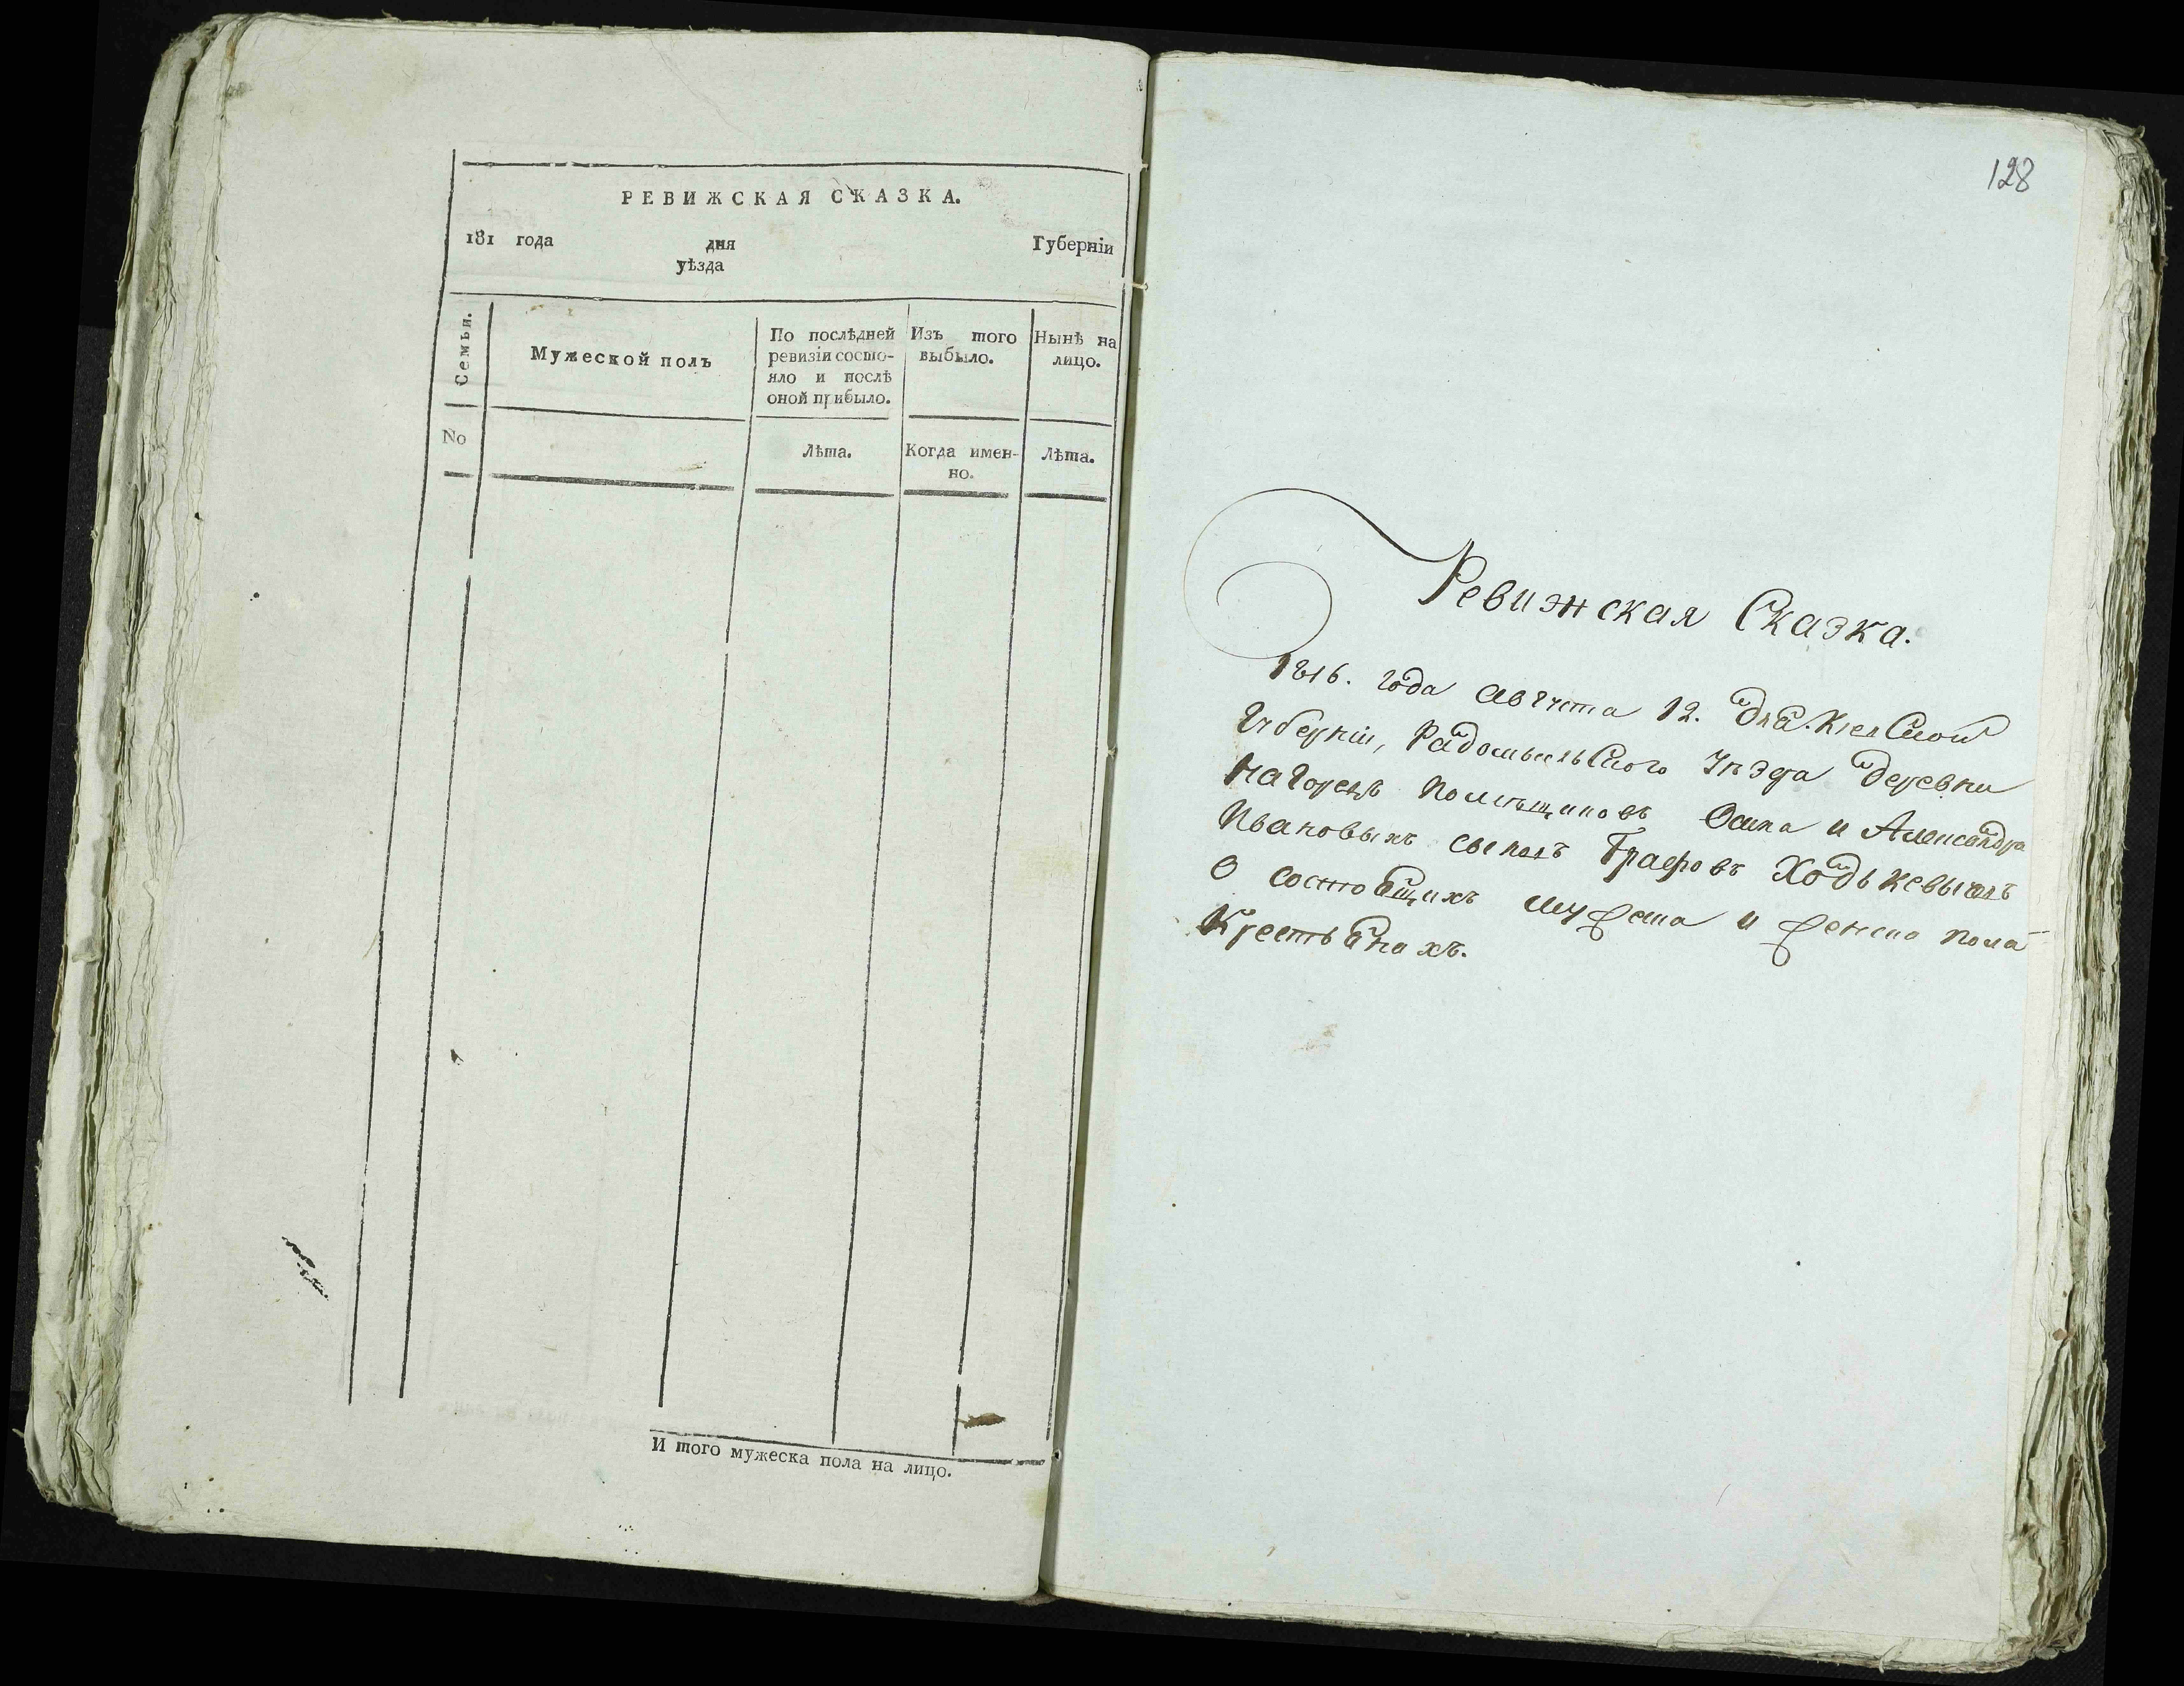 РЕВИЖСКАЯ СКАЗКА.
181 года дня Губерніи
уѣзда
Семьи.
Мужеской полъ
По послѣдней
ревизіи состо-
яло и послѣ
оной прибыло.
Изъ того
выбыло.
Нынѣ на
лицо.
No
Лѣта.
Когда имен-
но.
Лѣта.
И того мужеска пола на лицо.
128
Ревижская Сказка.
1816. года августа 12. дня. Киевской
Губерніи, Радомысльского Уѣзда деревни
Нагорекъ помѣщиковъ и Александра
Ивановыхъ сыновъ Графовъ Ходькевычовъ
О состоящихъ мужеска и женска пола
Крестьянахъ.